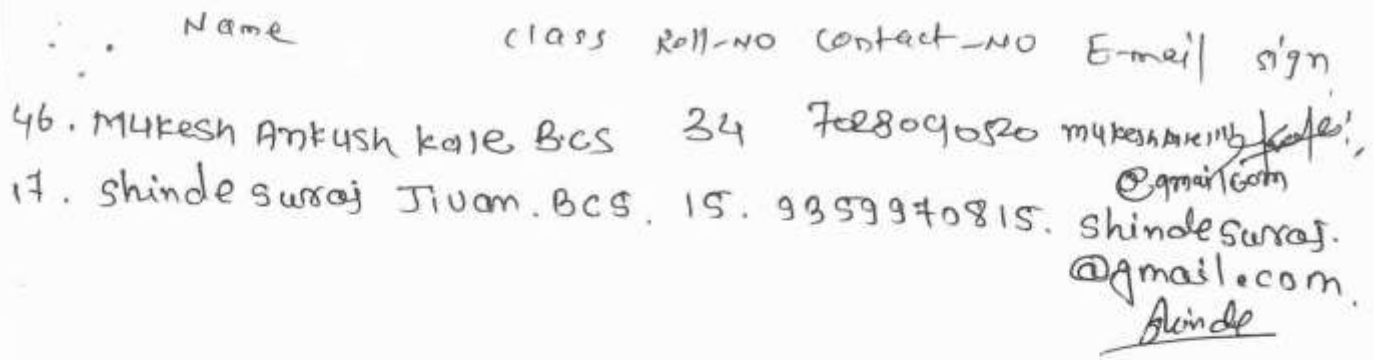 Name class Roll-NO contact-NO E-mail sign
46. Mukesh Ankush kale BCS 34 7028090520
@gmail.com
17. Shinde Suraj Jivan. BCS. 15. 9359970815. Shindesuraj.
@gmail.com.
Shinde